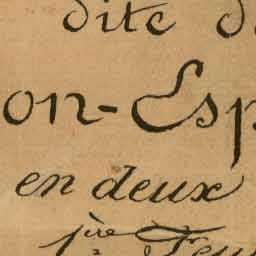 dite d
on-Esp
en deux
1ère Feu